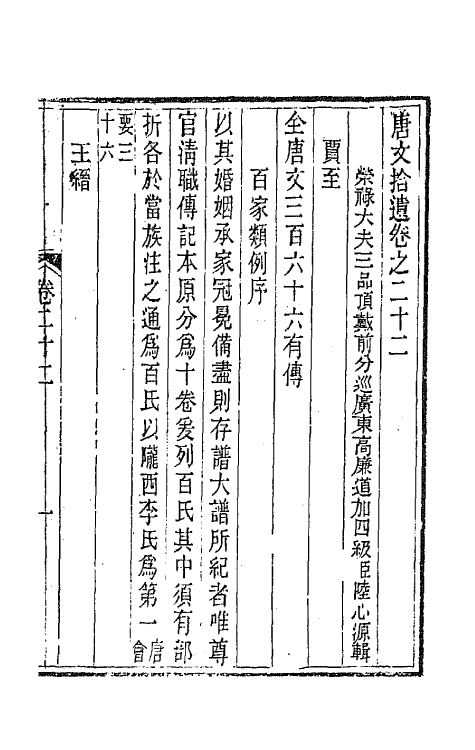 唐文拾遺卷之二十二
榮祿大夫三品頂戴前分巡廣東高廉道加四級臣陸心源輯
賈至
全唐文三百六十六有傳
百家類例序
以其婚姻承家冠冕備盡則存譜大譜所紀者唯尊
官清職傳記本原分爲十卷爰列百氏其中須有部
折各於當族注之通爲百氏以隴西李氏爲第一唐會
要三十六
王縉
卷二十二
一